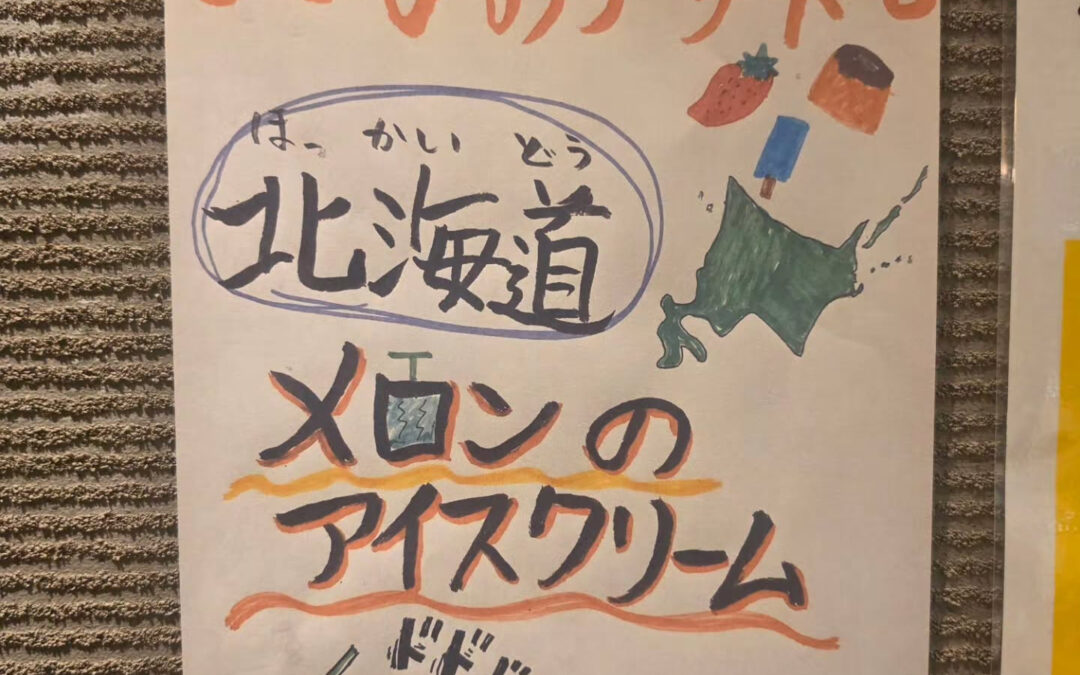 はっかいどう
北海道
メロンの
アイスクリーム
ドドド